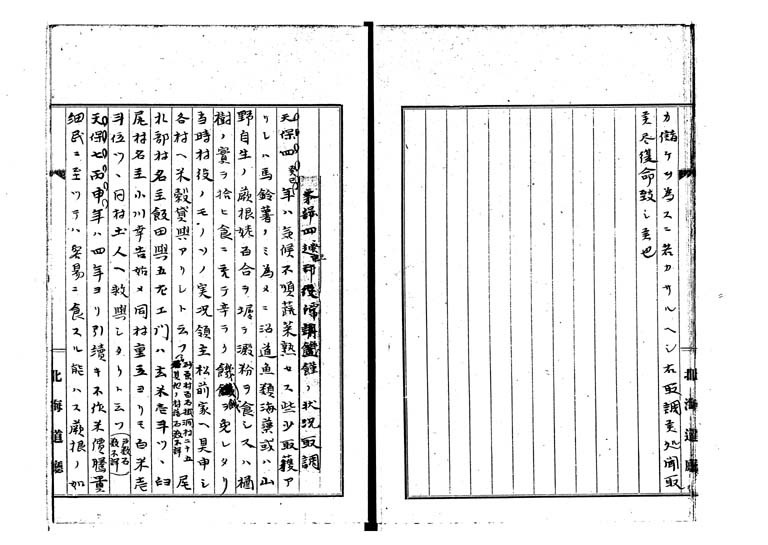 カ儲ケヲ為スニ若カサルヘシ右取調書処聞取
書尽復命致シ候也
北海道庁
天保四癸巳年ハ気候不順蔬菜熟セス些少取穫ア
リシハ馬鈴薯ノミ為メニ沿道魚類海藻或ハ山
野自生ノ蕨根姥百合ヲ堀ヲ澱粉ヲ食シ又ハ楢
樹ノ実ヲ拾ヒ食ニ充テ辛ラク饑餓ヲ免レタリ
当時村役ノモノソノ実況領主松前家ヘ具申シ
各村ヘ米穀貸与アリシト云フ
札部村名主飯田与五左エ門ハ玄米壱斗ツヽ臼
尻村名主小川幸吉始メ同村重立ヨリモ白米壱
斗位ツヽ同村土人ヘ救与シタリト云フ
戸数石数不詳
天保七丙申年ハ四年ヨリ引続キ不作米価騰貴
細民ニ至ツテハ容易ニ食スル能ハス蕨根ノ如
北海道庁